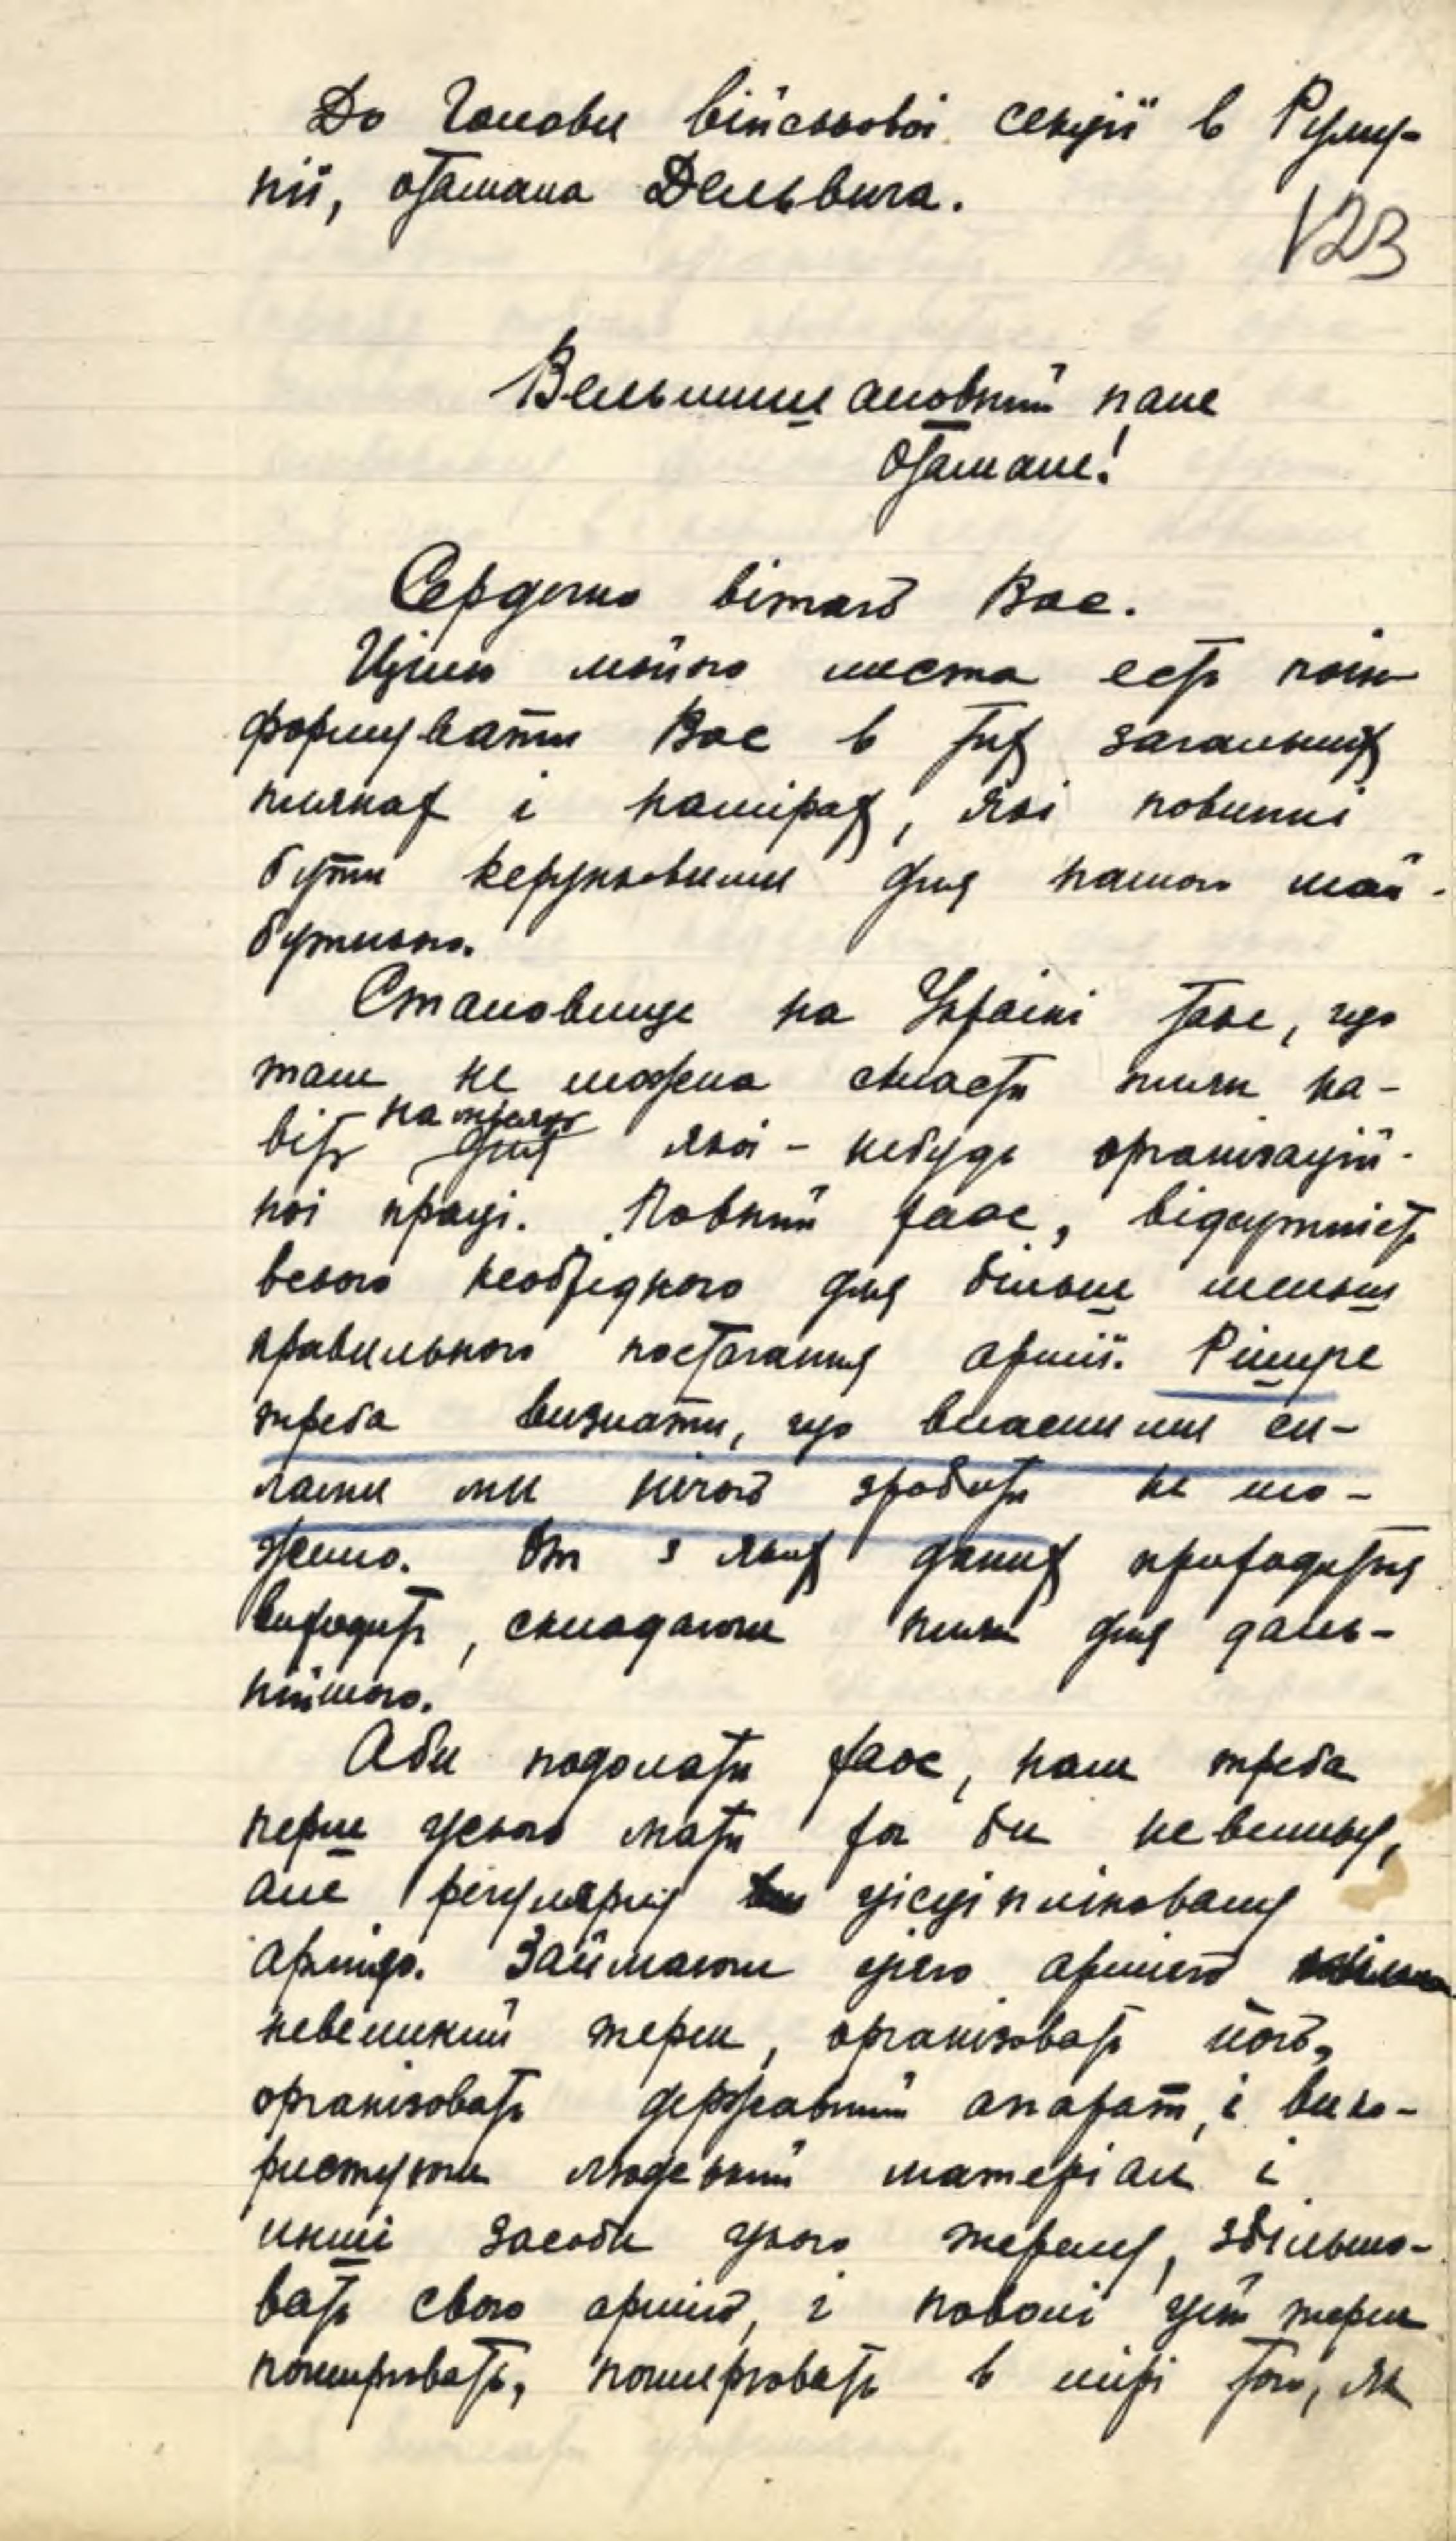 До Голови військовоі секціï в Руму-
ніï, отамана Дельвига.
123
Вельмишановний пане
отамане!
Сердечно вітаю Вас.
Цілью мойого листа есть поін-
формувати Вас в тих загальних
плянах і намірах, якi повинні
бути керунковими для нашого май-
бутнього.
Становище на Украіні таке, що
там не можна скласти пляна на-
віть на терені якоі-небудь організацій-
ноі праці. Повний хаос, відсутність
всього необхідного для більш меньш
правильного постачання арміï. Рішуче
треба визнати, що власними си-
лами ми нічого зробити не мо-
жемо. От з яких даних приходиться
виходить, складаючи пляни для даль-
нійшого.
Аби подолати хаос, нам треба
перш усього мати хоч би невелику,
але регулярну дісціпліновану
армію. Займаючи цією армією
невеликий терен, організовать його,
організовать державний апарат, і вико-
ристуючи людський матеріал і
инші засоби цього терену, збільшо-
вать свою армію, і поволі цей терен
поширювать, поширювать в мірі того, як